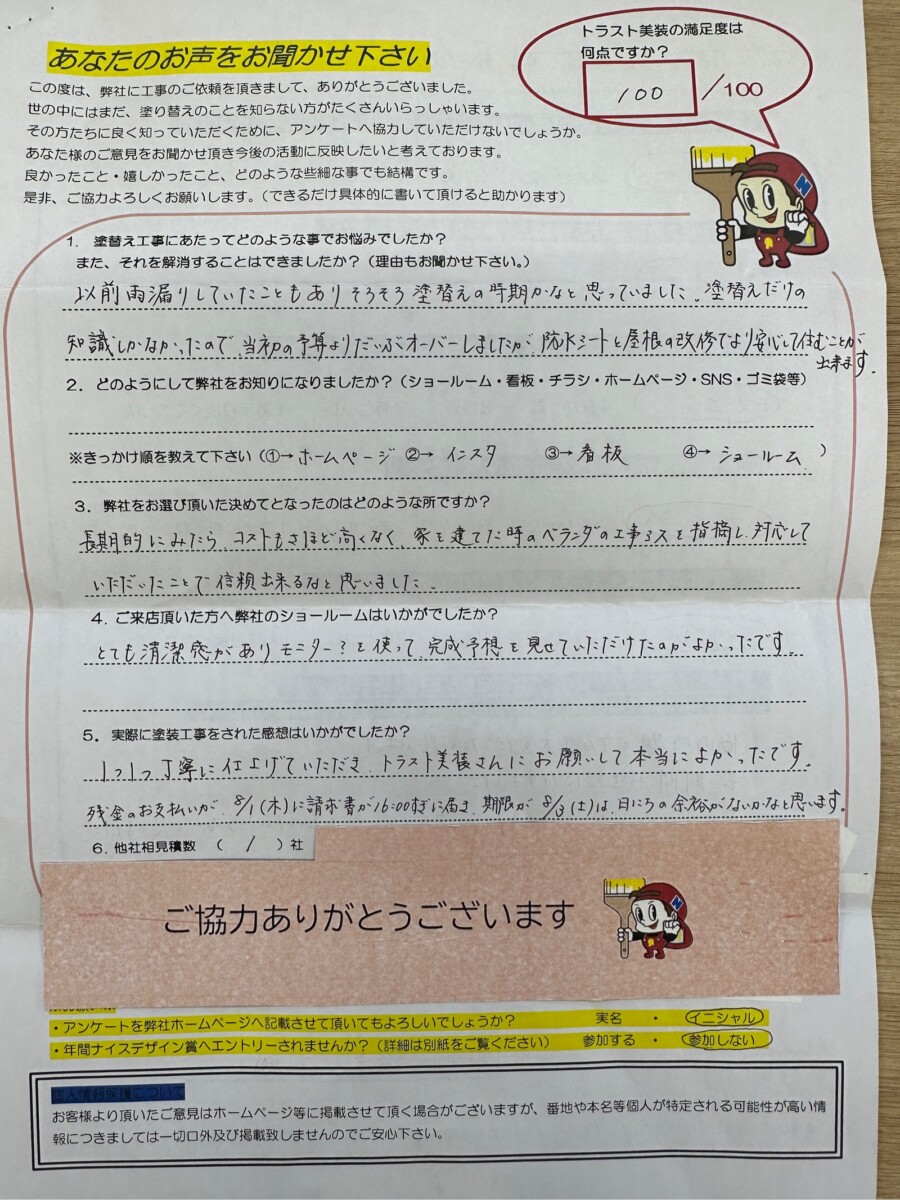 あなたのお声をお聞かせ下さい
トラスト美装の満足度は
何点ですか?
100/100
この度は、弊社に工事のご依頼を頂きまして、ありがとうございました。
世の中にはまだ、塗り替えのことを知らない方がたくさんいらっしゃいます。
その方たちに良く知っていただくために、アンケートへ協力していただけないでしょうか。
あなた様のご意見をお聞かせ頂き今後の活動に反映したいと考えております。
良かったこと・嬉しかったこと、どのような些細な事でも結構です。
是非、ご協力よろしくお願いします。(できるだけ具体的に書いて頂けると助かります)
1. 塗替え工事にあたってどのような事でお悩みでしたか?
また、それを解消することはできましたか?(理由もお聞かせ下さい。)
以前雨漏りしていたこともありそろそろ塗替えの時期かなと思っていました。塗替えだけの
知識しかなかったので、当初の予算よりだいぶオーバーしましたが、防水シートと屋根の改修でより安心して住むことが
出来ます。
2. どのようにして弊社をお知りになりましたか?(ショールーム・看板・チラシ・ホームページ・SNS・ゴミ袋等)
※きっかけ順を教えて下さい(①→ホームページ ②→ インスタ ③→看板 ④→ ショールーム )
3. 弊社をお選び頂いた決めてとなったのはどのような所ですか?
長期的にみたら、コストもさほど高くなく、家を建てた時のベランダの工事ミスを指摘し、対応して
いただいたことで信頼出来るなと思いました。
4. ご来店頂いた方へ弊社のショールームはいかがでしたか?
とても清潔感がありモニター?を使って、完成予想を見せていただけたのがよかったです。
5. 実際に塗装工事をされた感想はいかがでしたか?
1つ1つ丁寧に仕上げていただき、トラスト美装さんにお願いして本当によかったです。
残金のお支払いが、8/1(木)に請求書が16:00すぎに届き、期限が8/3(土)は、日にちの余裕がないかなと思います。
6. 他社相見積数 ( 1 )社
ご協力ありがとうございます
・アンケートを弊社ホームページへ記載させて頂いてもよろしいでしょうか? 実名 ・ イニシャル
・年間ナイスデザイン賞へエントリーされませんか?(詳細は別紙をご覧ください) 参加する ・ 参加しない
個人情報保護について
お客様より頂いたご意見はホームページ等に掲載させて頂く場合がございますが、番地や本名等個人が特定される可能性が高い情
報につきましては一切口外及び掲載致しませんのでご安心下さい。